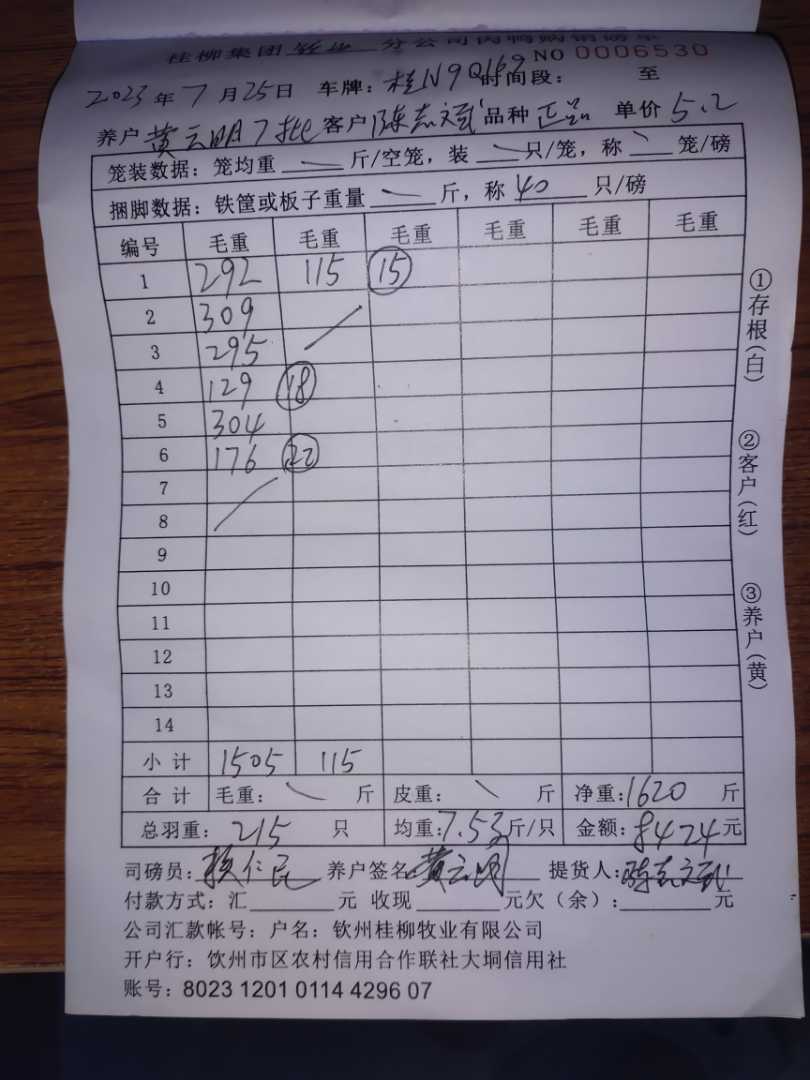 桂柳集团 牧业 分公司肉鸭购销磅单
NO 0006530
2023年7月25日 车牌：桂N9Q169 时间段： 至
养户 黄云明7批 客户 陈志斌 品种 正品 单价 5.2
笼装数据：笼均重 斤/空笼，装 只/笼，称 笼/磅
捆脚数据：铁筐或板子重量 斤，称 40 只/磅
编号 毛重 毛重 毛重 毛重 毛重 毛重
1 292 115 15
2 309
3 295
4 129 18
5 304
6 176 22
7
8
9
10
11
12
13
14
小计 1505 115
合计 毛重： 斤 皮重： 斤 净重：1620 斤
总羽重：215 只 均重：7.53斤/只 金额：8424元
司磅员：赖仁民 养户签名 黄云明 提货人：陈志斌
付款方式：汇 元 收现 元欠（余）： 元
公司汇款帐号：户名：钦州桂柳牧业有限公司
开户行：饮州市区农村信用合作联社大垌信用社
账号：8023 1201 0114 4296 07
①存根（白）
②客户（红）
③养户（黄）